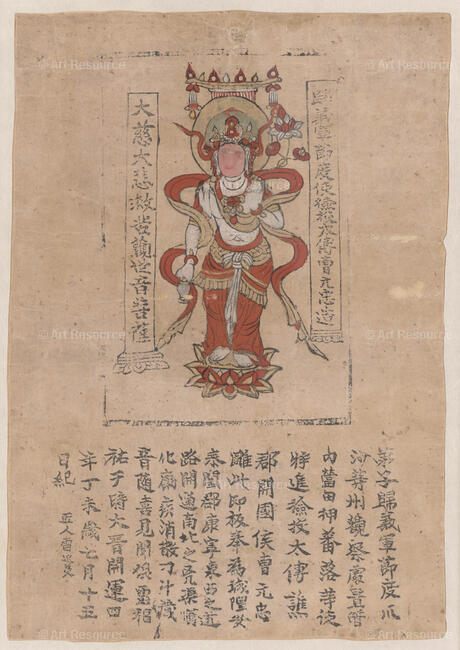 歸義軍節度使檢校太傅曹元忠造
大慈大悲救苦觀世音菩薩
弟子歸義軍節度瓜
沙等州觀察處置管
內營田押蕃落等使
特進檢校太傅譙
郡開國侯曹元忠
雕此印板奉為城隍安
泰闔郡康寧東西之道
路開通南北之凶渠順
化癘疾消散刁斗藏
音隨喜見聞俱霑福
祐于時大晉開運四
年丁未歲七月十五
日紀 匠人雷延美
© Art Resource
© Art Resource
© Art Resource
© Art Resource